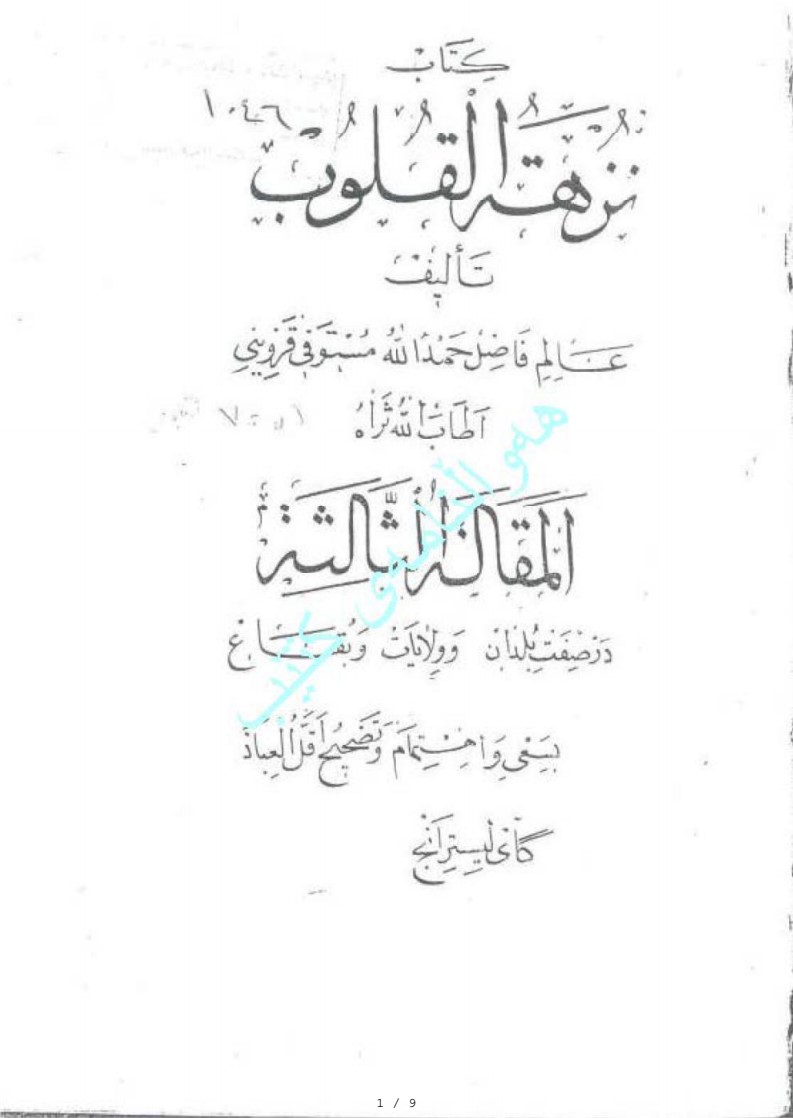 كِتَاب
١٠٤٦
نُزهَةُ القُلُوب
تَأليف
عَالِمِ فَاضِل حَمْدُالله مُسْتَوفیِ قَزوِینیِ
اَطَابَ اللهُ ثَرَاهُ
المَقَالَةُ الثَّالِثَة
دَر صِفَتِ بُلدَان وَوِلَايَات وَبُقَاع
بسَعیِ وَاِهتِمَام وَتَصْحِیحِ اَقَلِّ العِبَاد
گای لِیستِرَانج
هەواڵنامەی کتێب
1 / 9